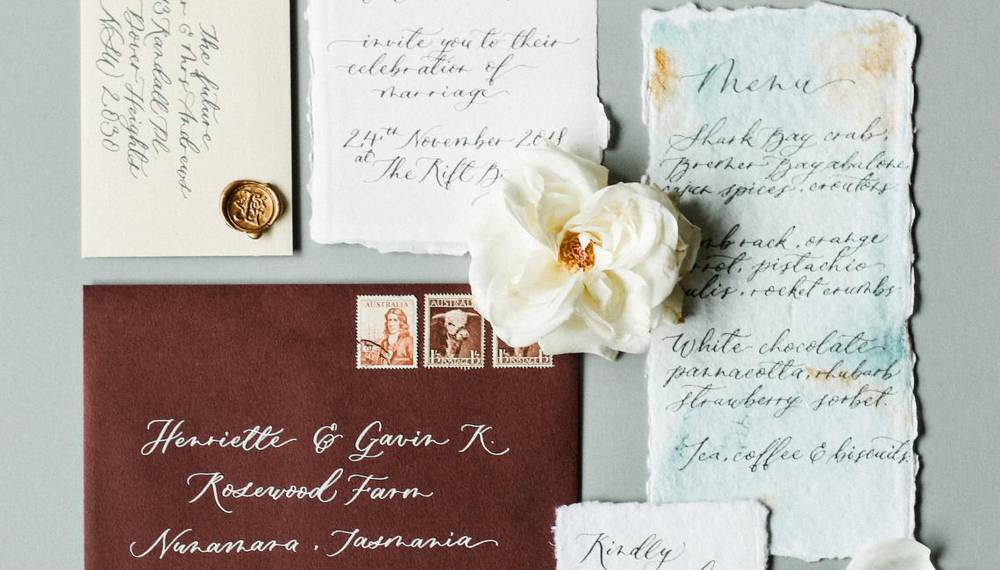 The Future
r & Mrs Andrews
3 Randall Pl.
Dover Heights
NSW 2030
invite you to their
celebration of
marriage
24th November 2018
at The Rift
Menu
Shark Bay crab,
Bremer Bay abalone
spices, croutons
orange
pistachio
rocket crumbs
White chocolate
pannacotta, rhubarb
strawberry sorbet.
Tea, coffee & biscuits.
AUSTRALIA
AUSTRAL
POSTAGE
POSTAGE
Henriette & Gavin K.
Rosewood Farm
Nunamara, Tasmania
Kindly